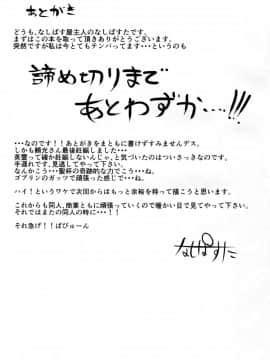 あとがき
どうも、なしぱすた屋主人のなしぱすたです。
まずはこの本を取って頂きありがとうございます。
突然ですが私は今とてもテンパってます・・・というのも
諦め切りまで
あとわずか…!!!
・・・なのです！！あとがきをまともに書けずすみませんデス。
しかも頼光さん最後妊娠しました・・・
英霊って確か妊娠しないんじゃ、と気づいたのはついさっきなのです。
手遅れです、見逃してやって下さい。
なんかこう・・・聖杯の奇跡的な力でこう・・・ね。
ゴブリンのガッツで頑張った感じで・・・ね。
ハイ！というワケで次回からはもっと余裕を持って描こうと思います。
これからも同人、商業ともに頑張っていくので暖かい目で見てやって下さい。
それではまたの同人の時に・・・！！
それ急げ！！ばびゅーん
なしぱすた